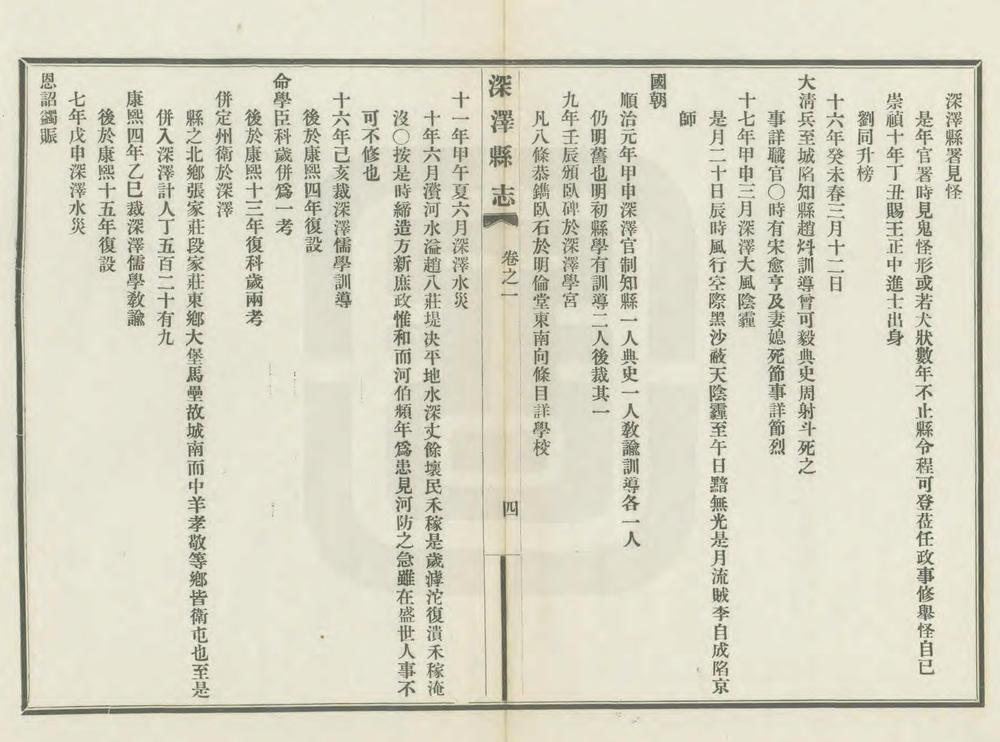 深澤縣署見怪
是年官署時見鬼怪形或若犬狀數年不止縣令程可登莅任政事修舉怪自已
崇禎十年丁丑賜王正中進士出身
劉同升榜
十六年癸未春三月十二日
大淸兵至城陷知縣趙炓訓導曾可毅典史周射斗死之
事詳職官〇時有宋愈亨及妻媳死節事詳節烈
十七年甲申三月深澤大風陰霾
是月二十日辰時風行空際黑沙蔽天陰霾至午日黯無光是月流賊李自成陷京
師
國朝
順治元年甲申深澤官制知縣一人典史一人敎諭訓導各一人
仍明舊也明初縣學有訓導二人後裁其一
九年壬辰頒臥碑於深澤學宮
凡八條恭鐫臥石於明倫堂東南向條目詳學校
深澤縣志
卷之一
四
十一年甲午夏六月深澤水災
十年六月滱河水溢趙八莊堤決平地水深丈餘壞民禾稼是歲滹沱復潰禾稼淹
沒〇按是時締造方新庶政惟和而河伯頻年爲患見河防之急雖在盛世人事不
可不修也
十六年己亥裁深澤儒學訓導
後於康熙四年復設
命學臣科歲併爲一考
後於康熙十三年復科歲兩考
併定州衛於深澤
縣之北鄕張家莊段家莊東鄕大堡馬壘故城南而中羊孝敬等鄕皆衛屯也至是
併入深澤計人丁五百二十有九
康熙四年乙巳裁深澤儒學敎諭
後於康熙十五年復設
七年戊申深澤水災
恩詔蠲賑